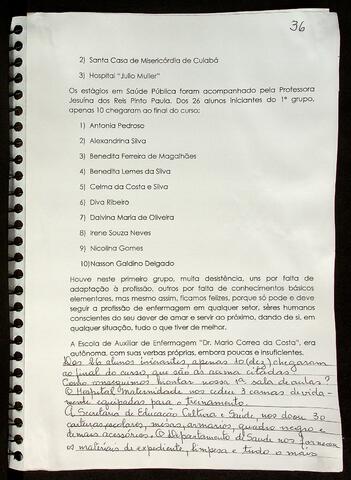 36
2) Santa Casa de Misericórdia de Cuiabá
3) Hospital "Julio Muller"
Os estágios em Saúde Pública foram acompanhado pela Professora
Jesuína dos Reis Pinto Paula. Dos 26 alunos iniciantes do 1º grupo,
apenas 10 chegaram ao final do curso:
1) Antonia Pedroso
2) Alexandrina Silva
3) Benedita Ferreira de Magalhães
4) Benedita Lemes da Silva
5) Celma da Costa e Silva
6) Diva Ribeiro
7) Dalvina Maria de Oliveira
8) Irene Souza Neves
9) Nicolina Gomes
10)Nasson Galdino Delgado
Houve neste primeiro grupo, muita desistência, uns por falta de
adaptação à profissão, outros por falta de conhecimentos básicos
elementares, mas mesmo assim, ficamos felizes, porque só pode e deve
seguir a profissão de enfermagem em qualquer setor, sêres humanos
conscientes do seu dever de amar e servir ao próximo, dando de si, em
qualquer situação, tudo o que tiver de melhor.
A Escola de Auxiliar de Enfermagem "Dr. Mario Correa da Costa", era
autônoma, com suas verbas próprias, embora poucas e insuficientes.
Dos 26 alunos iniciantes, apenas 10 (dez) chegaram
ao final do curso, que são as acima citadas.
Como conseguimos montar nossa 1ª sala de aulas?
O Hospital Maternidade nos cedeu 3 camas devida-
mente equipadas para o treinamento.
A Secretaria de Educação Cultura e Saúde, nos doou 30
carteiras escolares, mesas, armarios, quadro negro e
demais acessórios. O Departamento de Saúde nos forneceu
os materiais de expediente, limpesa e tudo o mais